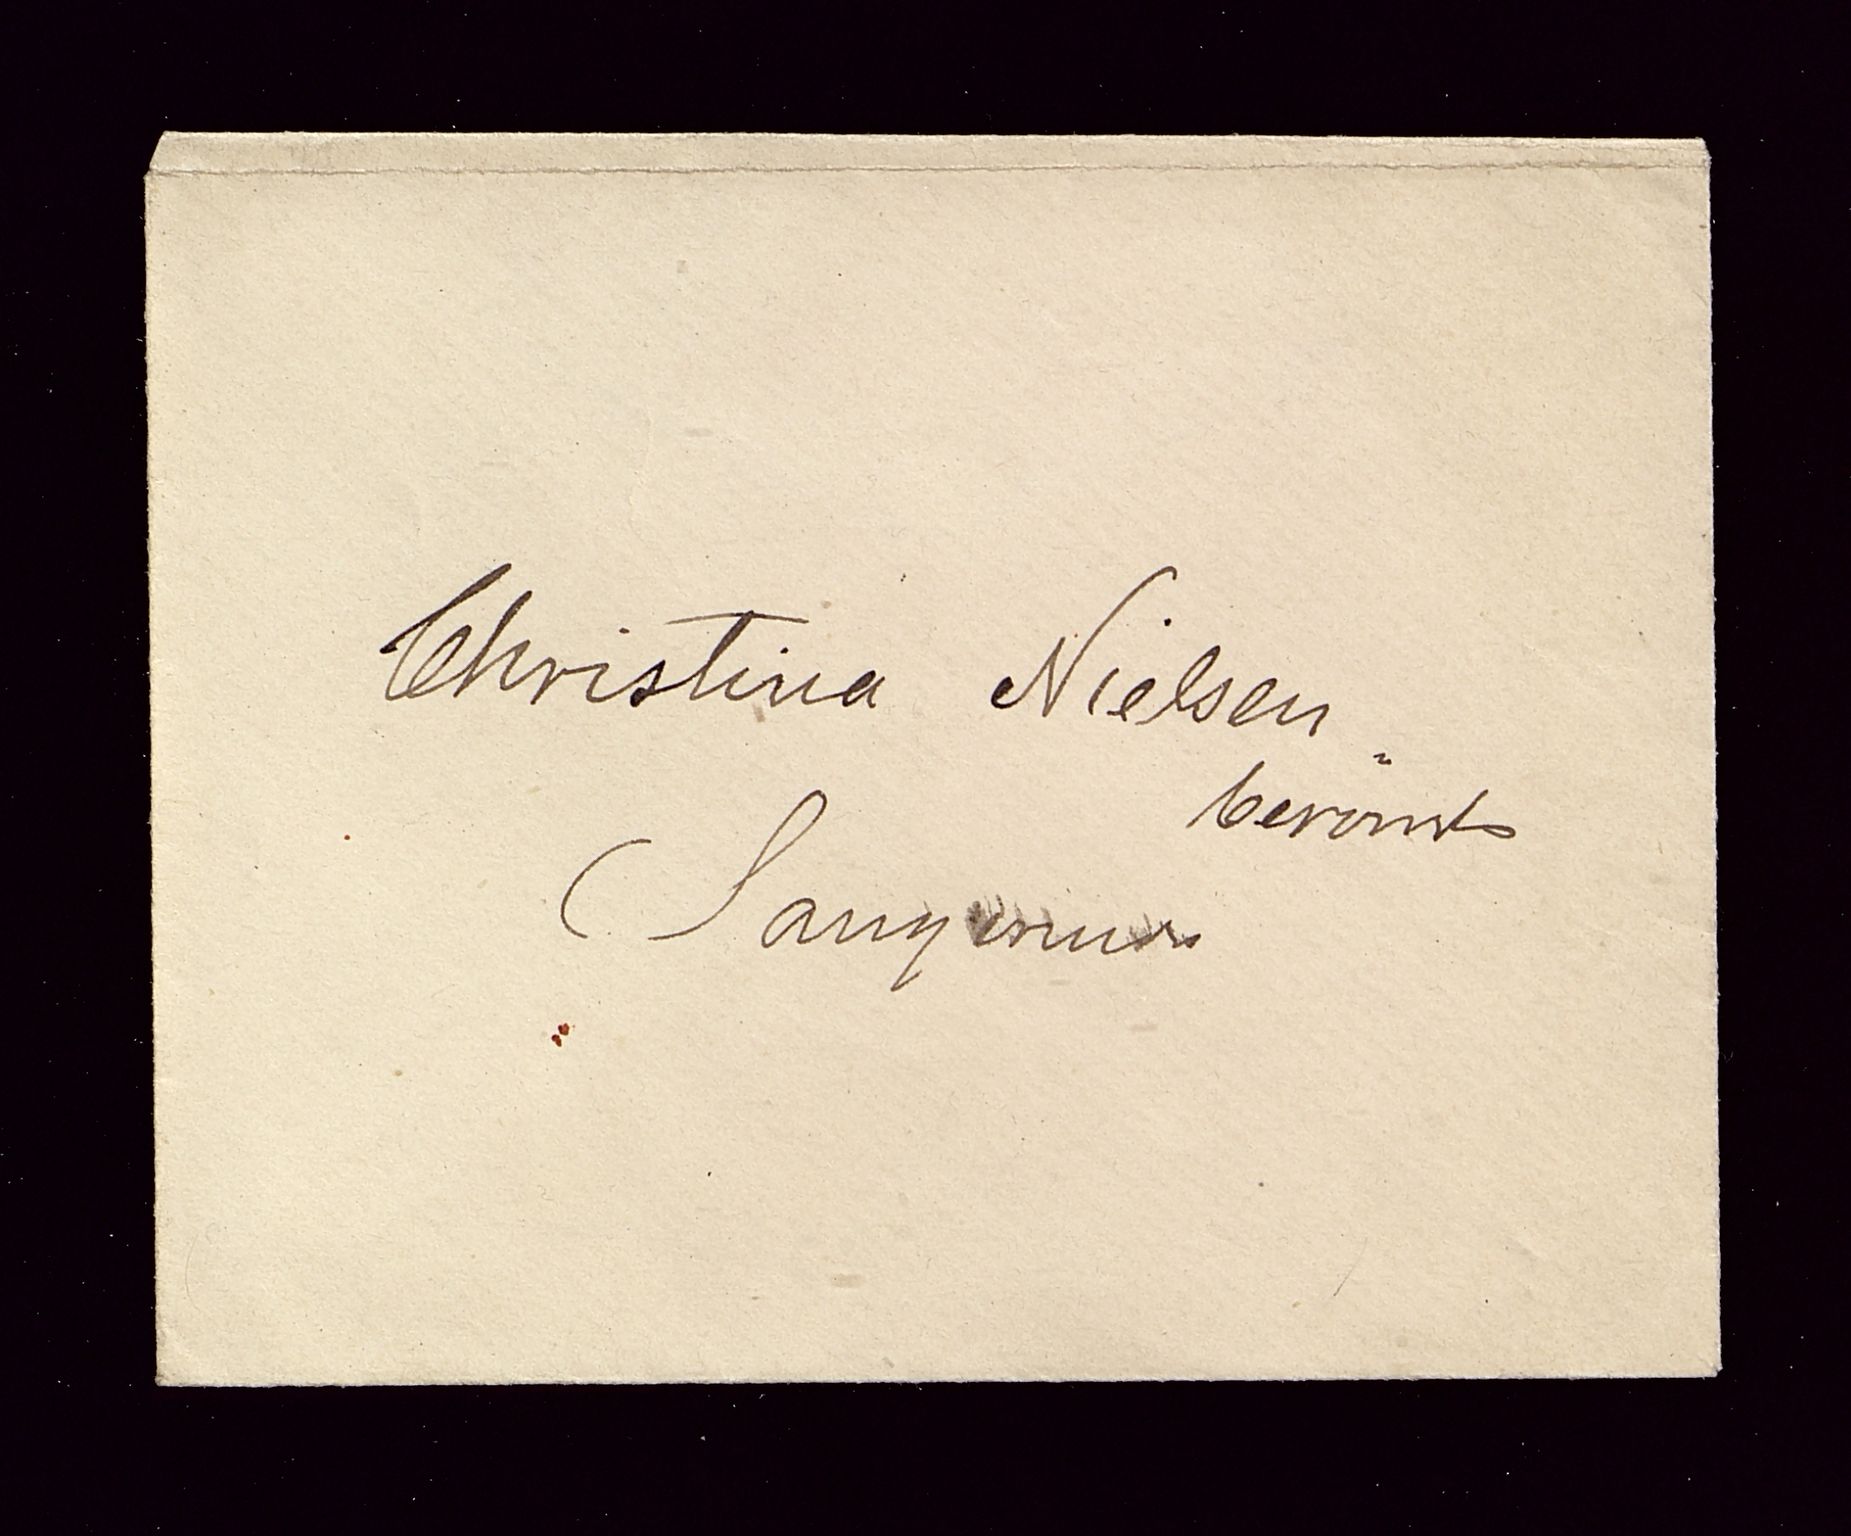 Christina Nielsen
berömts
(Sangerinde